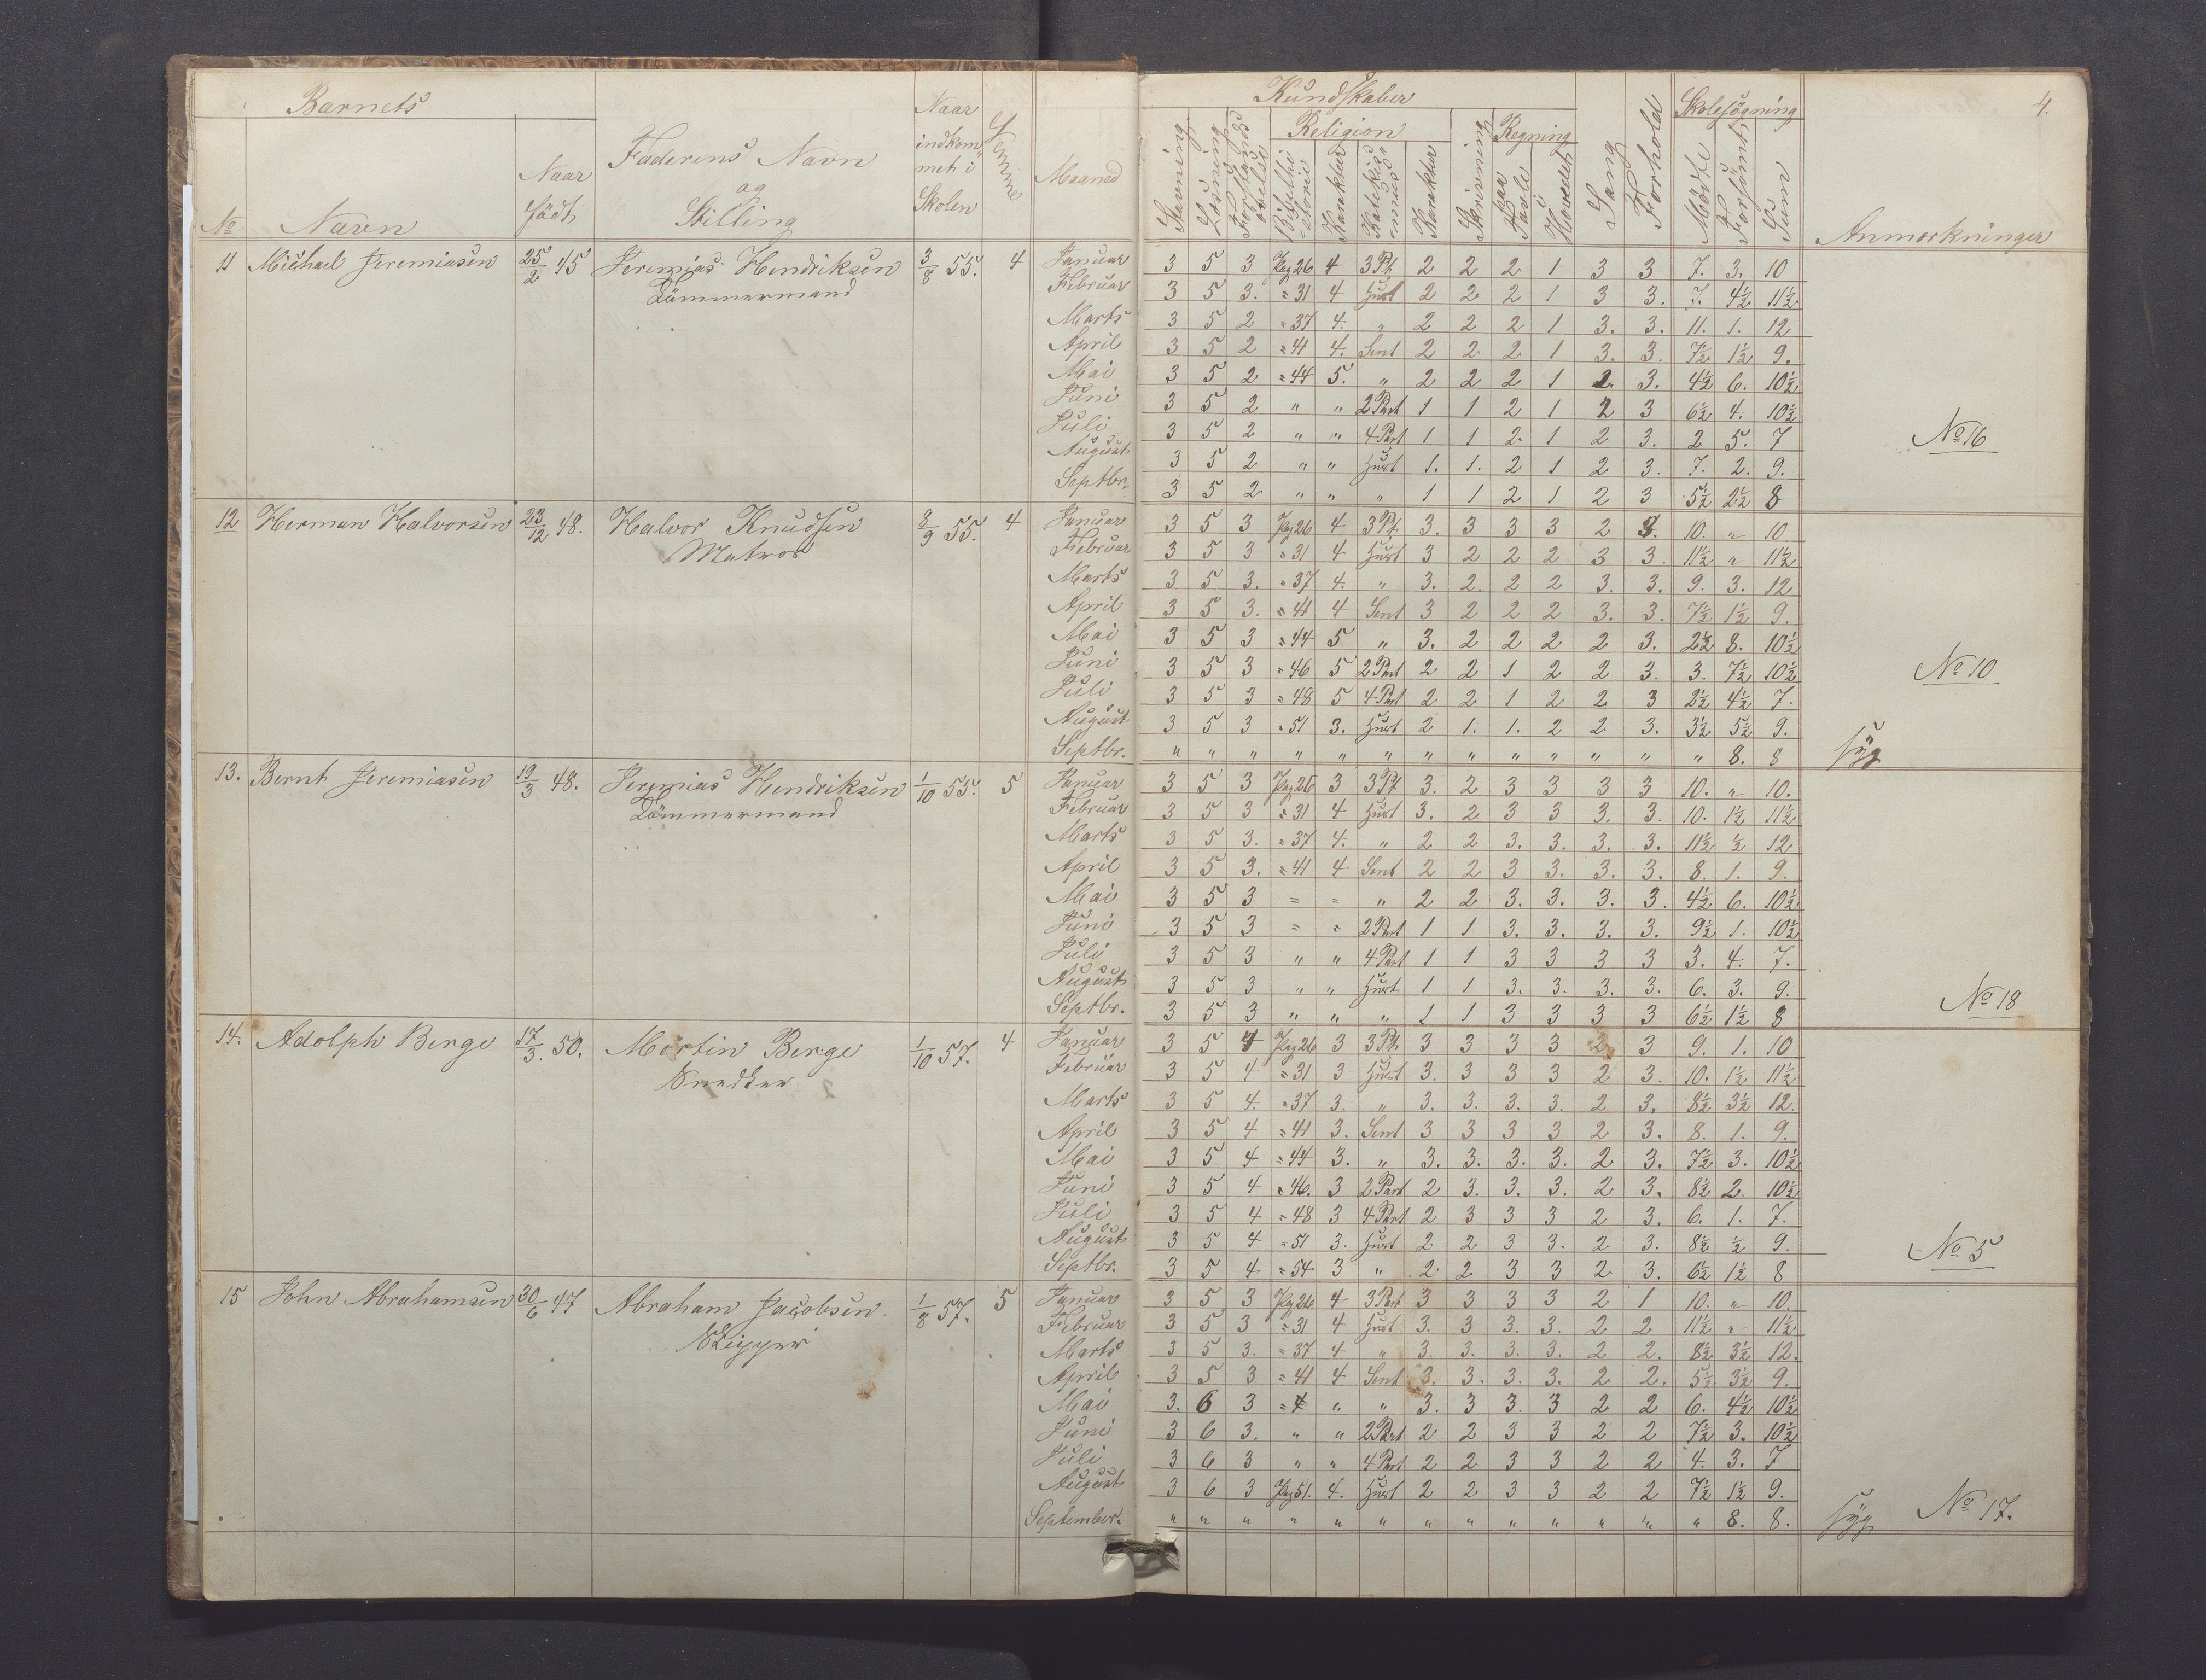 4.
Barnets | Faderens Navn og Stilling | Naar indkommet i Skolen | Stemme | Maaned | Kundskaber | Sang | Forhold | Skolesøgning | Anmærkninger
No | Navn | Naar født | Stavning | Læsning | Forstandsøvelse | Religion | Skrivning | Regning | Mødte | Forsømt | Sum
Bibelhistorie | Karakter | Katekismus | Karakter | paa Tavle | i Hovedet
11 Michael Jeremiasen 25/2 45 Jeremias Hendriksen 3/8 55. 4 Januar 3 5 3 Pag 26 4 3 Pt. 2 2 2 1 3 3 7. 3. 10
Tömmermand Februar 3 5 3. " 31 4 Hust 2 2 2 1 3 3. 7. 4½ 11½
Marts 3 5 2 " 37 4. " 2 2 2 1 3. 3. 11. 1. 12
April 3 5 2 " 41 4. Sent 2 2 2 1 3. 3. 7½ 1½ 9.
Mai 3 5 2 " 44 5. " 2 2 2 1 2. 3. 4½ 6. 10½
Juni 3 5 2 " " 2 Part 1 1 2 1 2 3 6½ 4. 10½
Juli 3 5 2 " " 4 Part 1 1 2 1 2 3. 2 5. 7 No 16
August 3 5 2 " " Hust 1. 1. 2 1 2 3. 7. 2. 9.
Septbr. 3 5 2 " " " 1 1 2 1 2 3 5½ 2½ 8
12 Herman Halvorsen 23/12 48. Halvor Knudsen 8/9 55. 4 Januar 3 5 3 Pag 26 4 3 Pt. 3. 3 3 3 2 3. 10. " 10
Matros Februar 3 5 3 " 31 4 Hust 3 2 2 2 3 3. 11½ " 11½
Marts 3 5 3. " 37 4. " 3. 2. 2 2 3. 3. 9. 3. 12
April 3 5 3. " 41 4 Sent 3 2 2 2 3. 3. 7½ 1½ 9.
Mai 3 5 3 " 44 5 " 3. 2 2 2 2 3. 2½ 8. 10½
Juni 3 5 3 " 46 5 2 Part 2 2 1 2 2 3. 3. 7½ 10½ No 10
Juli 3 5 3 " 48 5 4 Part 2 2 1 2 2 3 2½ 4½ 7.
August 3 5 3 " 51 3. Hust 2 1. 1. 2 2 3. 3½ 5½ 9.
Septbr. " " " " " " " " " " " " " 8. 8 Syg
13. Bernt Jeremiasen 19/3 48. Jeremias Hendriksen 1/10 55. 5 Januar 3 5 3 Pag 26 3 3 Pt. 3. 2 3 3 3 3 10. " 10.
Tömmermand Februar 3 5 3 " 31 4 Hust 3. 2 3 3 3. 3. 10. 1½ 11½
Marts 3 5 3. " 37 4. " 2 2 3. 3. 3. 3. 11½ ½ 12
April 3 5 3. " 41 4 Sent 2 2 3 3. 3. 3. 8. 1. 9.
Mai 3 5 3 " " " 2 2 3. 3. 3. 3. 4½ 6. 10½
Juni 3 5 3 " " 2 Part 1 1 3. 3. 3. 3. 9½ 1. 10½
Juli 3 5 3 " " 4 Part 1 1 3 3 3 3 3. 4. 7.
August 3 5 3 " " Hust 1 1 3. 3. 3. 3. 6. 3. 9. No 18
Septbr. 3 5 3 " " " 1 1 3 3 3 3 6½ 1½ 8
14. Adolph Berge 17/3. 50. Mortin Berge 1/10 57. 4 Januar 3 5 4 Pag 26 3 3 Pt. 3 3 3 3 2 3 9. 1. 10
Snedker Februar 3 5 4 " 31 3 Hust 3. 3 3 3 2 3. 10. 1½ 11½
Marts 3 5 4. " 37 3. " 3. 3. 3. 3. 2 3. 8½ 3½ 12.
April 3 5 4 " 41 3. Sent 3 3 3 3 2 3. 8. 1. 9.
Mai 3 5 4 " 44 3. " 3. 3. 3. 3. 2 3. 7½ 3. 10½
Juni 3 5 4 " 46. 3 2 Part 2 3. 3. 3. 2 3. 8½ 2 10½
Juli 3 5 4 " 48 3 4 Part 2 3 3 3 2 3. 6. 1. 7.
August 3 5 4 " 51 3. Hust 2 2 3 3. 2 3. 8½ ½ 9. No 5
Septbr. 3 5 4 " 54 3 " 2 2 3 3 2 3. 6½ 1½ 8
15 John Abrahamsen 30/6 47 Abraham Jacobsen 1/8 57. 5 Januar 3 5 3 Pag 26 4 3 Part 3 3 3 3 2 1 10. " 10.
Skipper Februar 3 5 3 " 31 4 Hust 3. 3 3. 3. 2 2 11½ " 11½
Marts 3 5 3. " 37 4 " 3. 3. 3. 3. 2 2. 8½ 3½ 12.
April 3 5 3 " 41 4 Sent 3. 3. 3. 3. 2 2. 5½ 3½ 9.
Mai 3. 6 3 " " " 3. 3 3. 3 2 2 6. 4½ 10½
Juni 3 6 3. " " 2 Part 2 2 3 3 2 2 7½ 3. 10½
Juli 3 6 3 " " 4 Part 2 2 3 3 2 2 4. 3. 7
August 3 6 3 Pag 51. 4. Hust 2 2 3 3 2 2 7½ 1½ 9.
September. " " " " " " " " " " " " " 8. 8. Syg No 17.